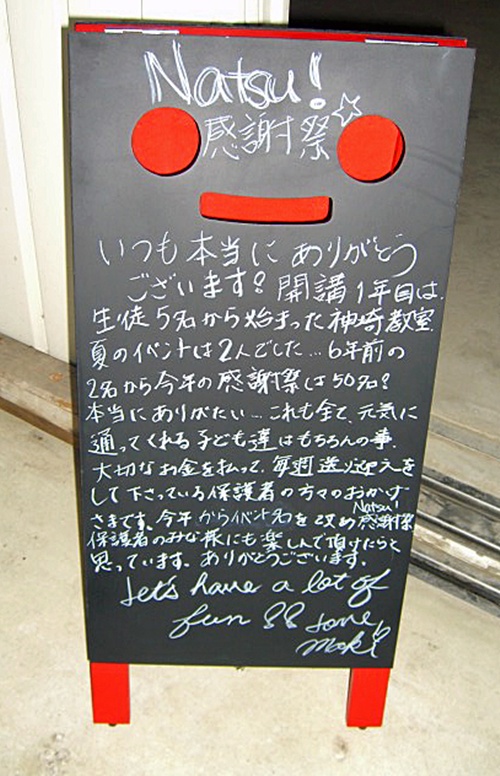 Natsu!
感謝祭☆
いつも本当に ありがとう
ございます! 開講1年目は、
生徒5名から始まった神崎教室
夏のイベントは2人でした…6年前の
2名から今年の感謝祭は50名!
本当にありがたい… これも全て、元気に
通ってくれる子ども達はもちろんの事、
大切なお金を払って、毎週送り迎えを
して下さっている保護者の方々のおかげ
さまです。今年からイベント名を改め Natsu!感謝祭
保護者のみな様にも楽しんで頂けたらと
思っています。ありがとうございます。
Let's have a lot of
fun !! Love,
Maki